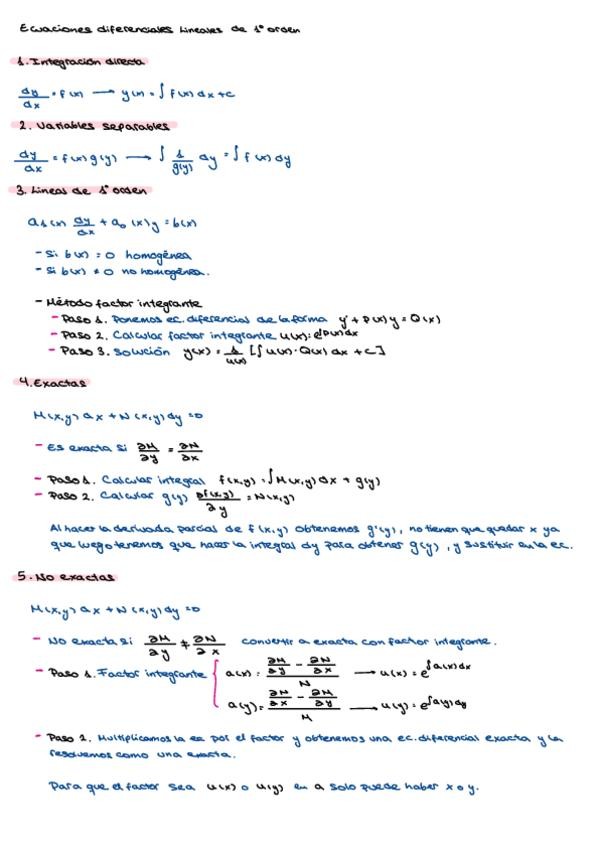 Ecuaciones diferenciales Lineales de 1º orden
1. Integración directa
dy/dx = f(x) → y(x) = ∫ f(x) dx + c
2. Variables separables
dy/dx = f(x) g(y) → ∫ 1/g(y) dy = ∫ f(x) dy
3. Lineas de 1º orden
a₁(x) dy/dx + a₀(x) y = b(x)
- Si b(x) = 0 homogénea
- Si b(x) ≠ 0 no homogénea.
- Método factor integrante
- Paso 1. Ponemos ec. diferencial de la forma y' + P(x) y = Q(x)
- Paso 2. Calcular factor integrante u(x): e^∫P(x)dx
- Paso 3. Solución y(x) = 1/u(x) [∫ u(x) · Q(x) dx + C]
4. Exactas
M(x,y) dx + N(x,y) dy = 0
- Es exacta si ∂M/∂y = ∂N/∂x
- Paso 1. Calcular integral f(x,y) = ∫ M(x,y) dx + g(y)
- Paso 2. Calcular g(y) ∂f(x,y)/∂y = N(x,y)
Al hacer la derivada parcial de f(x,y) obtenemos g'(y), no tienen que quedar x ya
que luego tenemos que hacer la integral dy para obtener g(y), y sustituir en la ec.
5. No exactas
M(x,y) dx + N(x,y) dy = 0
- No exacta si ∂M/∂y ≠ ∂N/∂x convertir a exacta con factor integrante.
- Paso 1. Factor integrante { a(x) = (∂M/∂y - ∂N/∂x)/N → u(x) = e^∫a(x)dx
a(y) = (∂N/∂x - ∂M/∂y)/M → u(y) = e^∫a(y)dy
- Paso 2. Multiplicamos la ec por el factor y obtenemos una ec. diferencial exacta y la
resolvemos como una exacta.
Para que el factor sea u(x) o u(y) en a solo puede haber x o y.